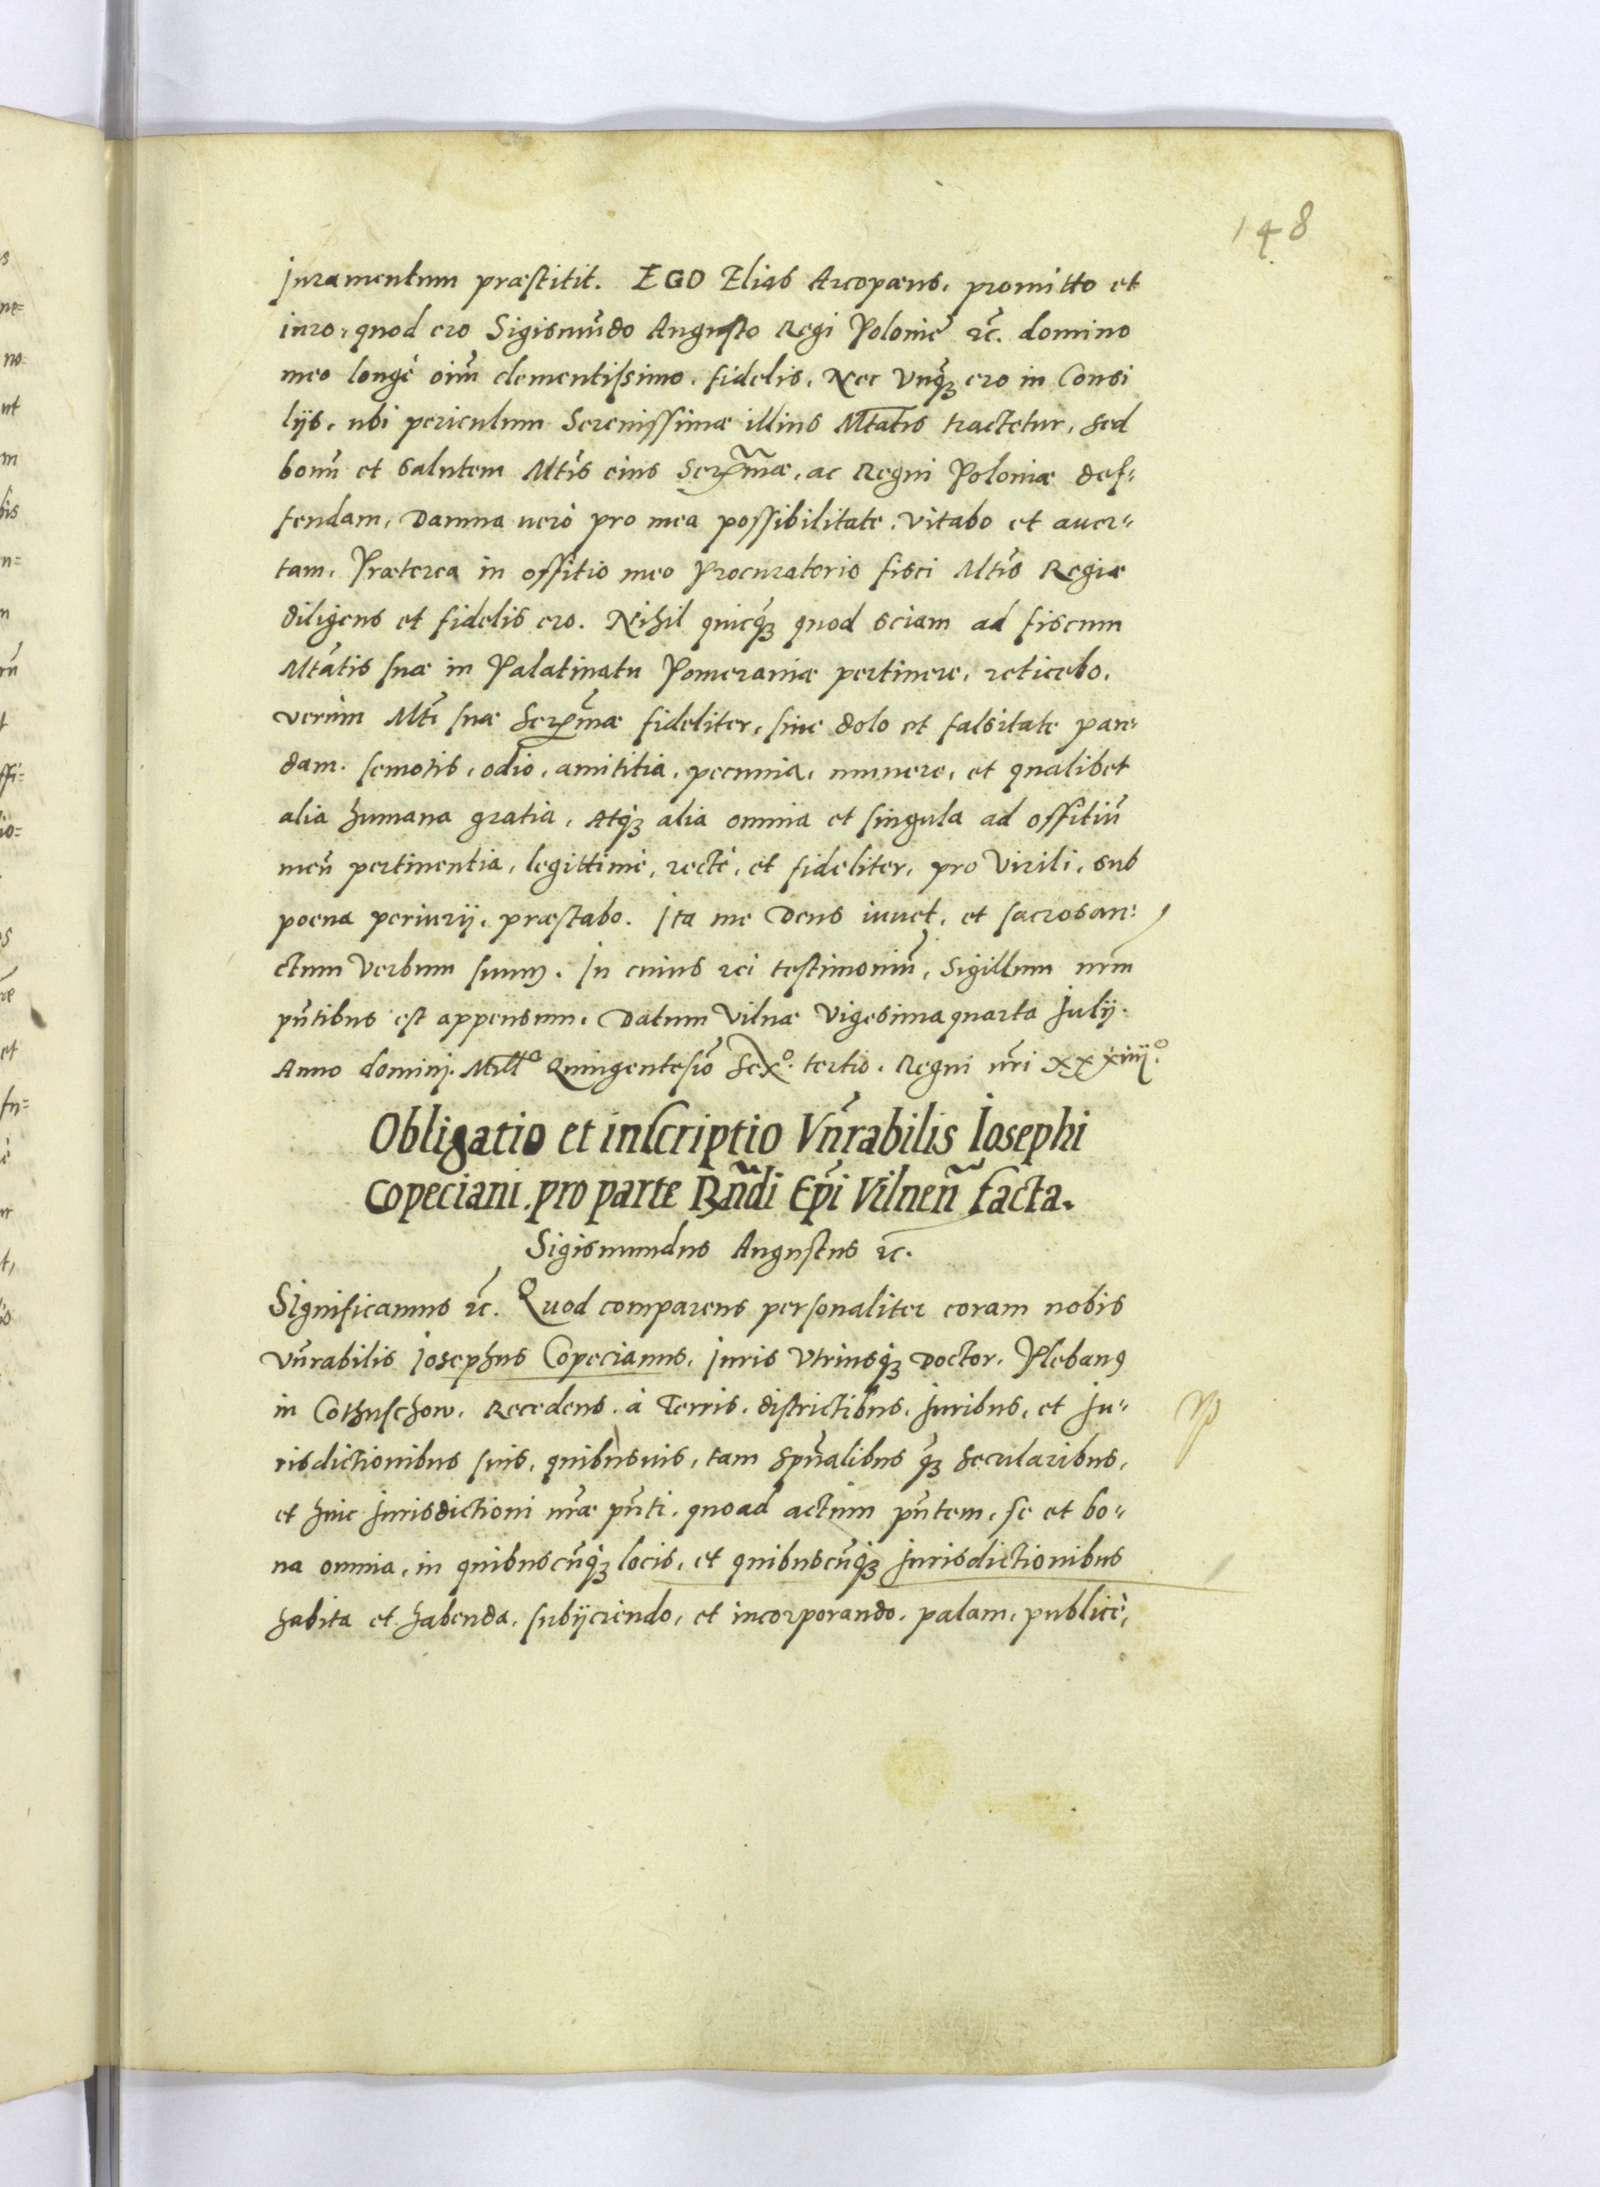 148
Juramentum præstitit. EGO Elias Arcopæus, promitto et
iuro, quod ero Sigismūdo Augusto Regi Polonie ꝛc̄. domino
meo longè oīm clementissimo, fidelis, Nec Vnq̄ꝫ ero in Consi
lijs, ubi periculum Serenissimæ illius Mtatis tractetur, sed
bonū et salutem Mtīs eius Serꝫmæ, ac Regni Poloniæ def-
fendam, Damna verò pro mea possibilitate, vitabo et auer-
tam, Præterea in offitio meo Procuratorio fisci Mtīs Regiæ
diligens et fidelis ero. Nihil quicq̄ꝫ quod sciam ad fiscum
Mtātis suæ in Palatinatu Pomeraniæ pertinere, reticebo,
verùm Mtī suæ Serꝫmæ fideliter, sine dolo et falsitate pan-
dam, semotis, odio, amititia, pecunia, munere, et qualibet
alia humana gratia, Atqꝫ alia omnia et singula ad offitiū
meū pertinentia, legittimè, rectè, et fideliter, pro Virili, sub
poena periurij, præstabo. Ita me Deus iuuet, et sacrosan-
ctum Verbum suum. In cuius rei testimoniū, Sigillum nrm̄
pn̄tibus est appensum. Datum Vilnæ Vigesima quarta Julij.
Anno dominj. Millo Quingentesīo Sexo. tertio. Regni nr̄i xxxiiijo.
Obligatio et inscriptio Vn̄rabilis Iosephi
Copeciani. pro parte Rn̄di Ep̄i Vilnen̄ facta.
Sigismundus Augustus ꝛc̄.
Significamus ꝛc̄. Quod comparens personaliter coram nobis
Vn̄rabilis Iosephus Copecianus, Juris Vtriusqꝫ Doctor, Plebanꝰ
in Cothuschow, Recedens à Terris, districtibus, Juribus, et Ju-
risdictionibus suis, quibusuis, tam Spūalibus q̄ꝫ Secularibus,
et huic Jurisdictioni nr̄æ pn̄ti, quoad actum pn̄tem, se et bo-
na omnia, in quibuscūqꝫ locis, et quibuscūqꝫ Jurisdictionibus
habita et habenda, subijciendo, et incorporando, palam, publicè,